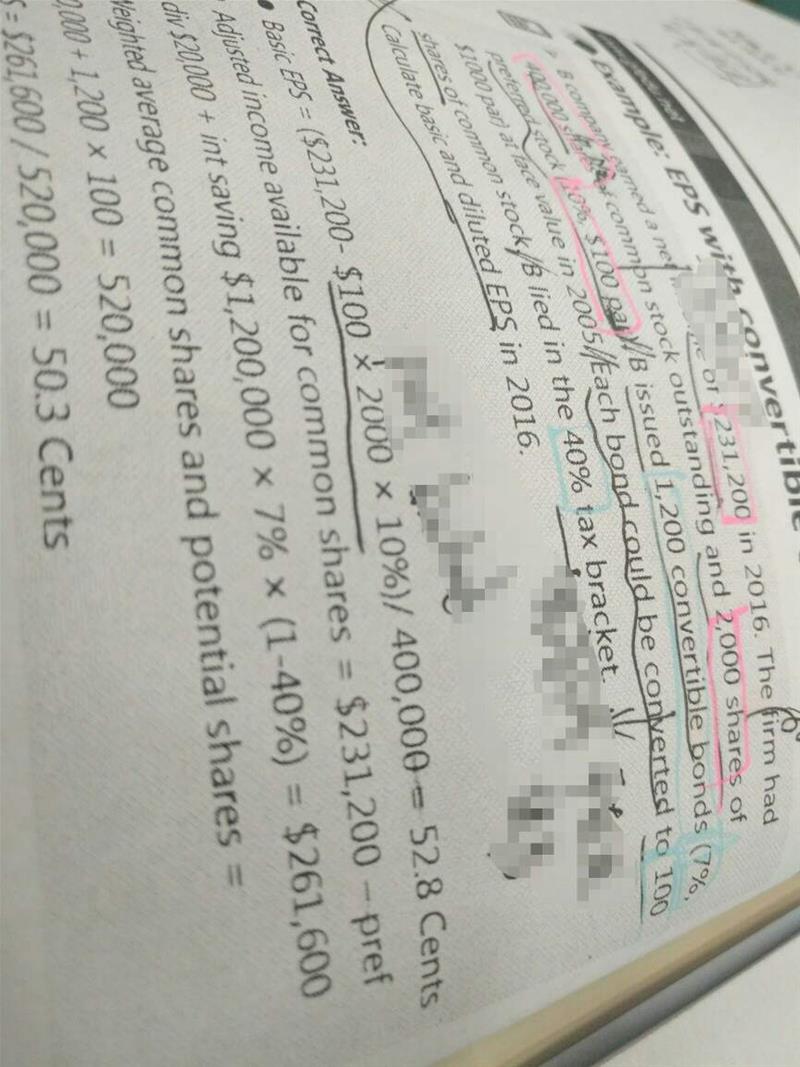 Example: EPS with convertible
B company earned a net of $231,200 in 2016. The firm had
400,000 shares common stock outstanding and 2,000 shares of
preferred stock (10%, $100 par)//B issued 1,200 convertible bonds (7%,
$1000 par) at face value in 2005//Each bond could be converted to 100
shares of common stock//B lied in the 40% tax bracket.
Calculate basic and diluted EPS in 2016.
Correct Answer:
• Basic EPS = ($231,200- $100 × 2000 × 10%)/ 400,000 = 52.8 Cents
Adjusted income available for common shares = $231,200 – pref
div $20,000 + int saving $1,200,000 × 7% × (1-40%) = $261,600
Weighted average common shares and potential shares =
0,000 + 1,200 × 100 = 520,000
S = $261,600 / 520,000 = 50.3 Cents